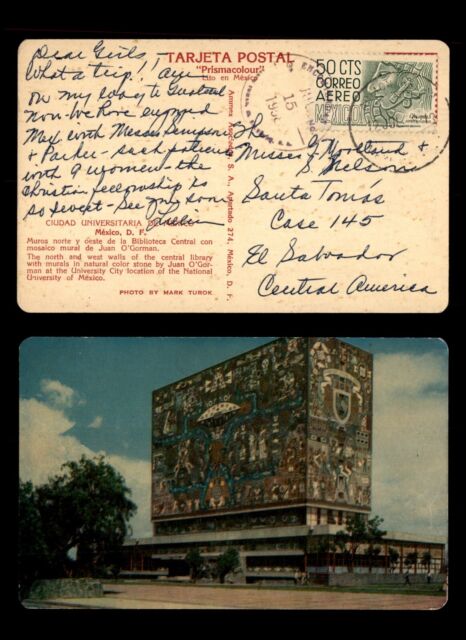 TARJETA POSTAL
"Prismacolour"
Lito en México
Dear Girls -
What a trip! Am
on my way to Guatemal
now - We have enjoyed
Mex with Messrs
& Parker - such patience
with 9 women - the
Christian fellowship is
so sweet - See my son
CIUDAD UNIVERSITARIA DE MEXICO
México, D. F.
Muros norte y oeste de la Biblioteca Central con
mosaico mural de Juan O'Gorman.
The north and west walls of the central library
with murals in natural color stone by Juan O'Gor-
man at the University City location of the National
University of México.
PHOTO BY MARK TUROK
S. A., Apartado 274, México, D. F.
50 CTS
CORREO
AEREO
MEXICO
15
Misses J. Moreland &
S. Nelson
Santa Tomás
Case 145
El Salvador
Central America